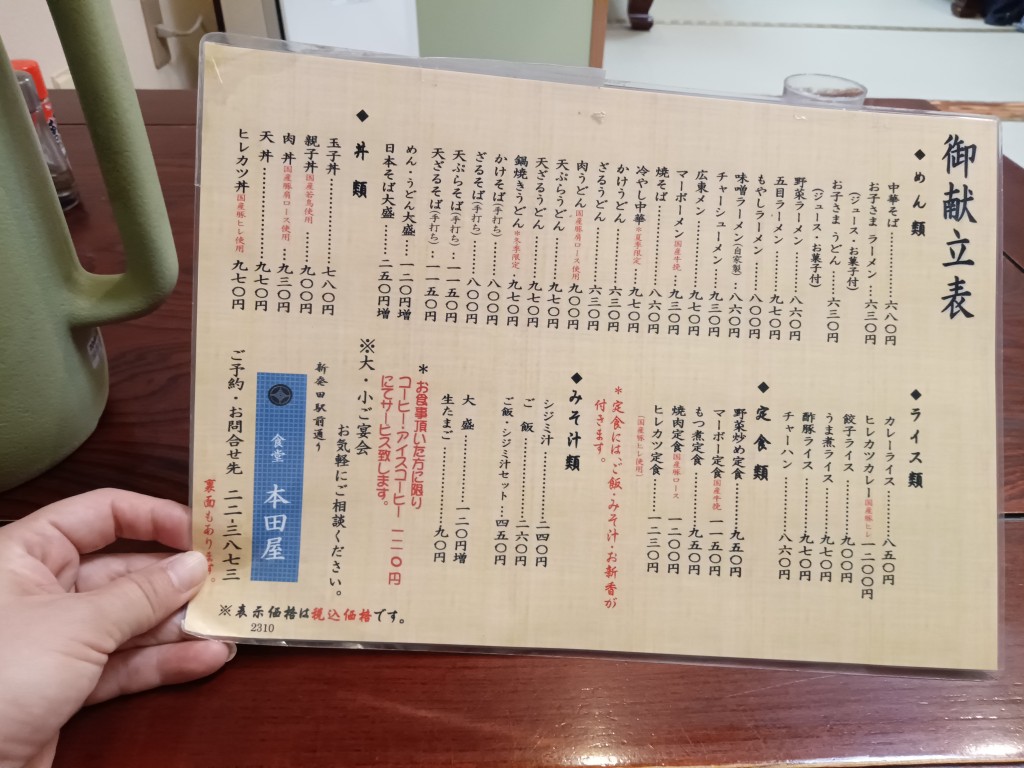 御献立表
◆めん類
中華そば………六八〇円
お子さま ラーメン…六三〇円
(ジュース・お菓子付)
お子さま うどん……六三〇円
(ジュース・お菓子付)
野菜ラーメン………八六〇円
五目ラーメン………九七〇円
もやしラーメン……八〇〇円
味噌ラーメン(自家製)…八六〇円
チャーシューメン…九三〇円
広東メン………九七〇円
マーボーメン国産牛挽…九三〇円
焼そば………八六〇円
冷やし中華※夏季限定…九七〇円
かけうどん………六三〇円
ざるうどん………六三〇円
肉うどん国産豚肩ロース使用 九〇〇円
天ぷらうどん………九七〇円
天ざるうどん………九七〇円
鍋焼きうどん※冬季限定 九七〇円
かけそば(手打ち)……八〇〇円
ざるそば(手打ち)……八〇〇円
天ぷらそば(手打ち)…一一五〇円
天ざるそば(手打ち)…一一五〇円
めん・うどん大盛…一二〇円増
日本そば大盛………二五〇円増
◆丼類
玉子丼………七八〇円
親子丼国産若鳥使用 九〇〇円
肉丼国産豚肩ロース使用 九三〇円
天丼………九七〇円
ヒレカツ丼国産豚ヒレ使用 九七〇円
◆ライス類
カレーライス………八五〇円
ヒレカツカレー国産豚ヒレ 一二〇〇円
餃子ライス………九〇〇円
うま煮ライス………九七〇円
酢豚ライス………九七〇円
チャーハン………八六〇円
◆定食類
野菜炒め定食………九五〇円
マーボー定食国産牛挽 一一五〇円
もつ煮定食………九五〇円
焼肉定食国産豚ロース 一二〇〇円
ヒレカツ定食………一二三〇円
(国産豚ヒレ使用)
*定食には、ご飯・みそ汁・お新香が
付きます。
◆みそ汁類
シジミ汁………二四〇円
ご飯………二六〇円
ご飯・シジミ汁セット…四五〇円
大盛………一二〇円増
生たまご………九〇円
*お食事頂いた方に限り
コーヒー・アイスコーヒー 一一〇円
にてサービス致します。
※大・小ご宴会
お気軽にご相談ください。
新発田駅前通り
食堂 本田屋
ご予約・お問合せ先 二二-三八七三
裏面もあります。
※表示価格は税込価格です。
2310